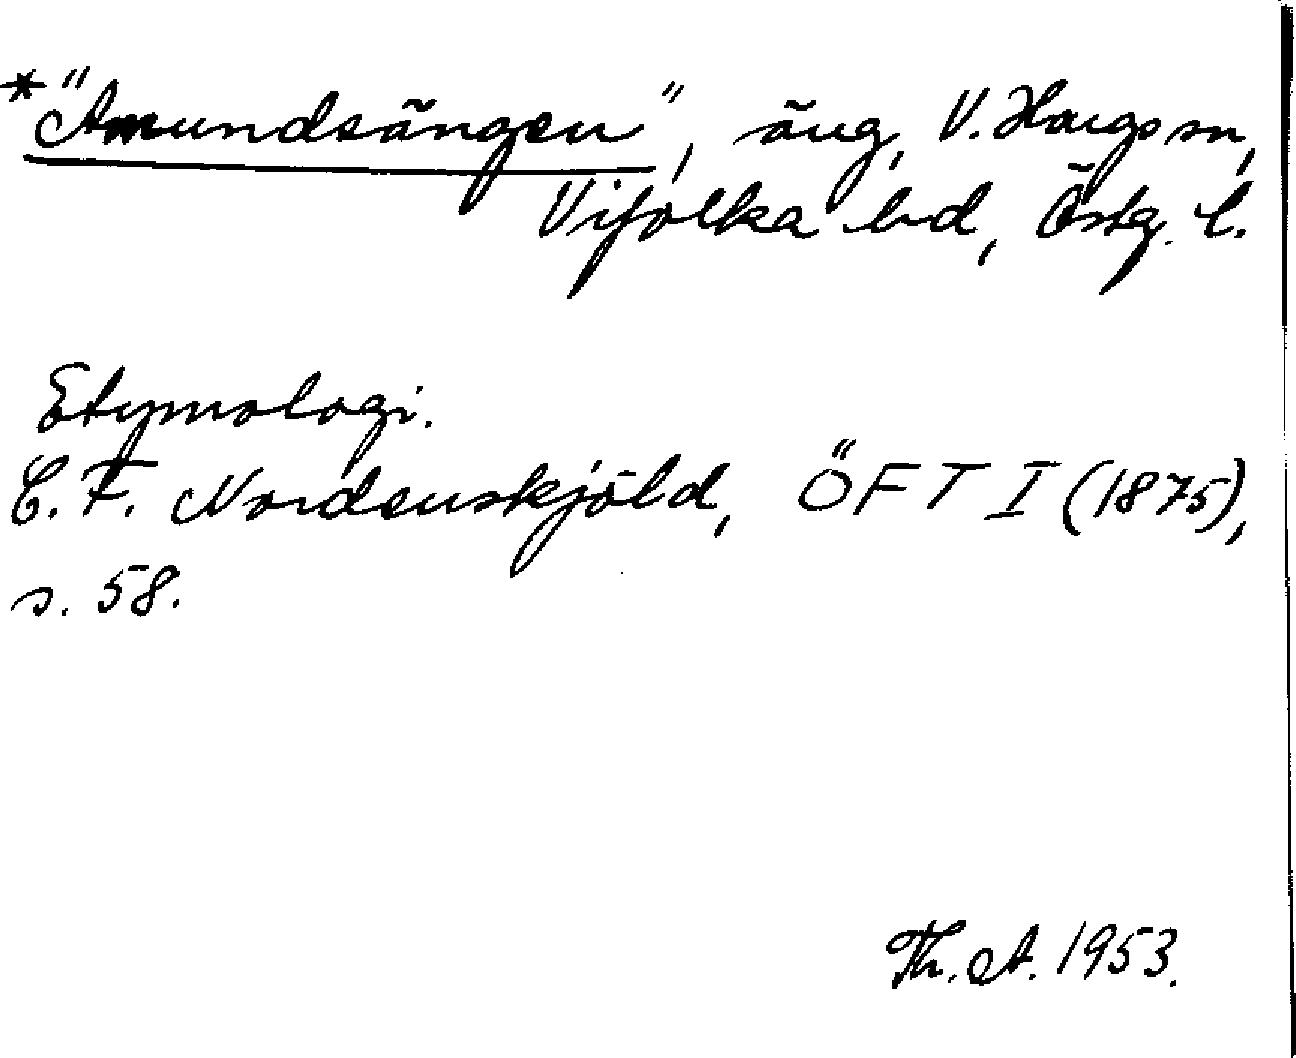 *"Amundsängen", äng, V. Hargs sn,
Vifolka hd, Östg. l.
Etymologi.
C. F. Nordenskjöld, ÖFT I (1875),
s. 58.
Th. A. 1953.